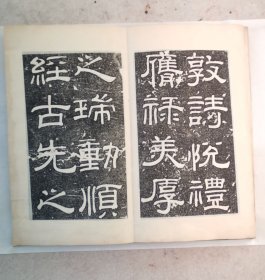 敦詩悅禮
膺祿美厚
之瑞動順
經古先之